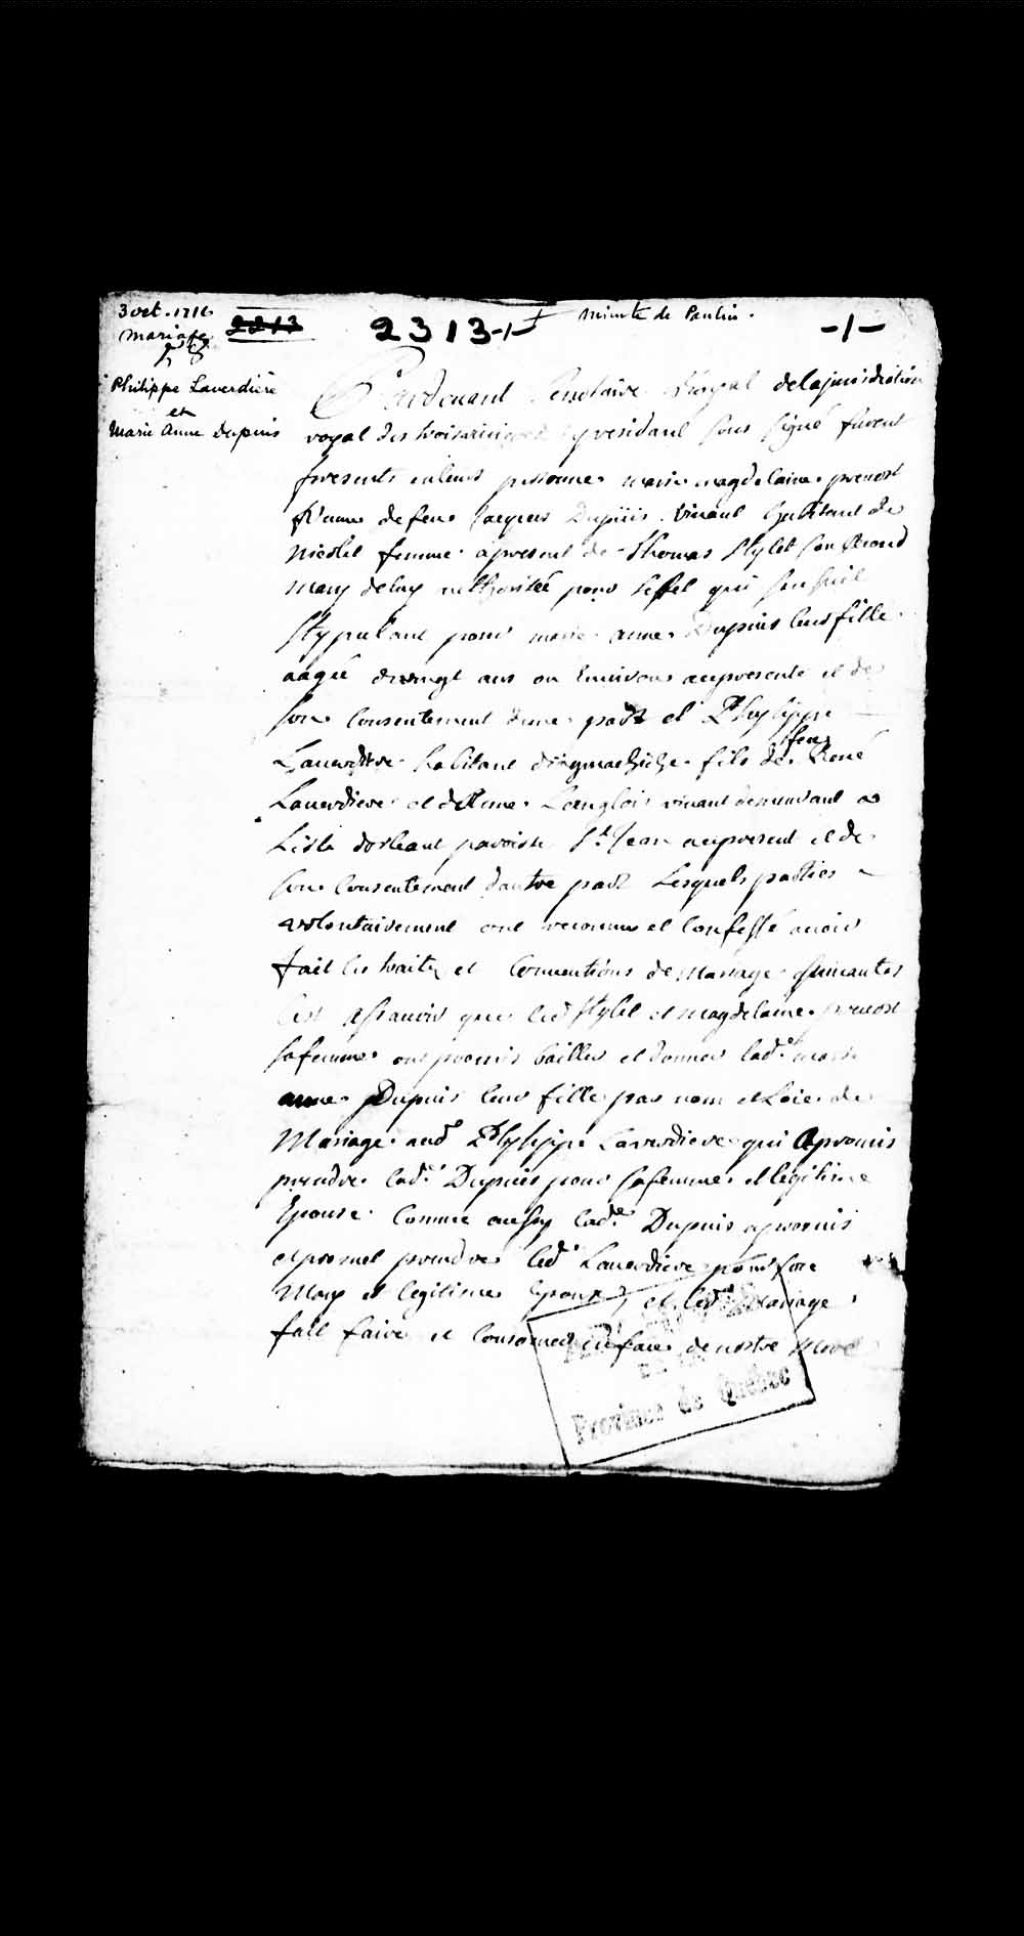 3 oct. 1716
mariage
2313
2313-1-
minute de Poulin.
-1-
Philippe Laverdière
et
Marie Anne Dupuis
Pardevant le notaire Royal de la jurisdiction
royal des trois rivieres y residant sous signé furent
presents en leurs personnes marie magdelaine prevost
de feu Jacques Dupuis vivant habitant de
Nicolet femme apresent de Thomas Stylet son second
mary de luy authorisée pour leffet qui sensuit
stypulant pour marie anne Dupuis leur fille
aagée de vingt ans ou Environ acepresente et de
son Consentement dune part et Phylippe
Laverdiere habitant fils de feu René
Laverdiere et Langlois vivant demeurant a
Lisle dorleant paroisse St Jean acepresent et de
son Consentement dautre part Lesquels parties
volontairement ont reconnu et Confessé avoir
fait les traité et Conventions de Mariage suivantes
Cest Assavoir que led Stylet et magdelaine prevost
safemme ont promis bailler et donner lade marie
anne Dupuis leur fille par nom et Loie de
Mariage aud Phylippe Laverdiere qui Apromis
prendre lade Dupuis pour safemme et legitime
Epouse Comme aussy lade Dupuis apromis
et promet prendre led Laverdiere pour son
Mary et legitime Epoux et led Mariage
fait faire et en face de nostre Mere
Province de Québec